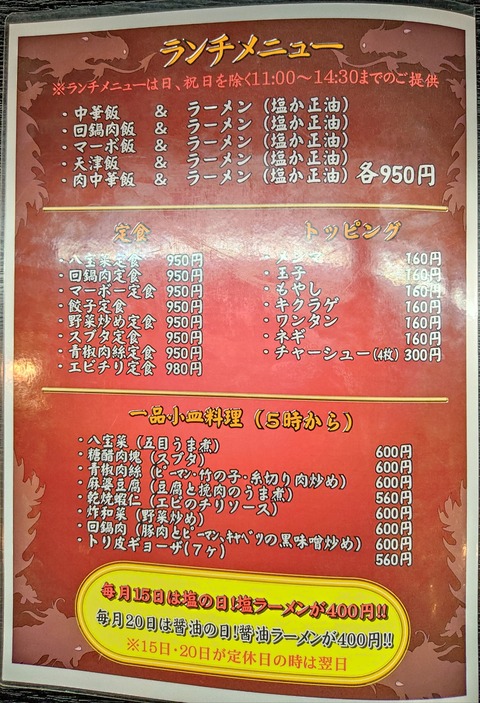 ランチメニュー
※ランチメニューは日、祝日を除く11:00〜14:30までのご提供
・中華飯 & ラーメン（塩か正油）
・回鍋肉飯 & ラーメン（塩か正油）
・マーボ飯 & ラーメン（塩か正油）
・天津飯 & ラーメン（塩か正油）
・肉中華飯 & ラーメン（塩か正油） 各950円
定食
・八宝菜定食 950円
・回鍋肉定食 950円
・マーボー定食 950円
・餃子定食 950円
・野菜炒め定食 950円
・スブタ定食 950円
・青椒肉絲定食 950円
・エビチリ定食 980円
トッピング
・メンマ 160円
・玉子 160円
・もやし 160円
・キクラゲ 160円
・ワンタン 160円
・ネギ 160円
・チャーシュー(4枚) 300円
一品小皿料理（5時から）
・八宝菜（五目うま煮） 600円
・糖醋肉塊（スブタ） 600円
・青椒肉絲（ピーマン・竹の子・糸切り肉炒め） 600円
・麻婆豆腐（豆腐と挽肉のうま煮） 560円
・乾焼蝦仁（エビのチリソース） 600円
・炸和菜（野菜炒め） 600円
・回鍋肉（豚肉とピーマン、キャベツの黒味噌炒め） 600円
・トリ皮ギョーザ(7ヶ) 560円
毎月15日は塩の日!塩ラーメンが400円!!
毎月20日は醤油の日!醤油ラーメンが400円!!
※15日・20日が定休日の時は翌日